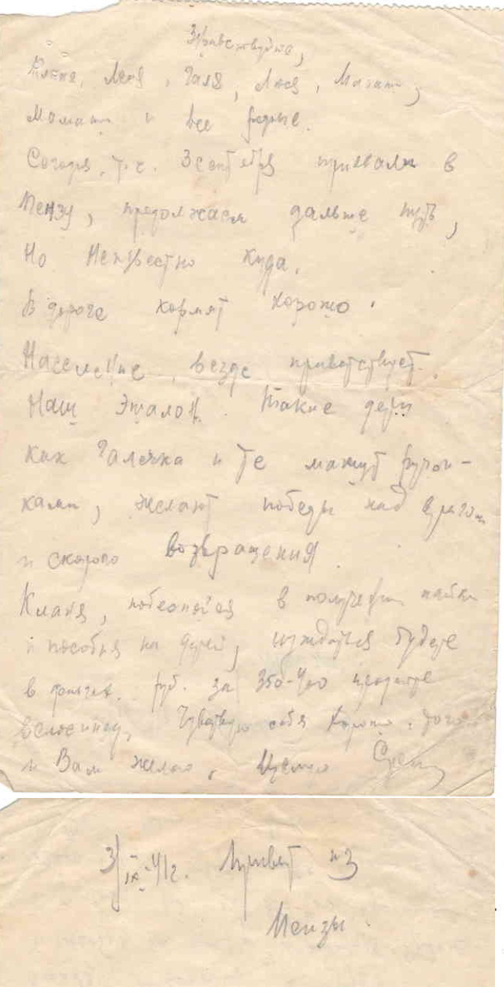 Здравствуйте,
Клава, Леня, Галя, Люся,
Мамаша и все родные.
Сегодня, т.е. 3 сентября приехали в
Пензу, продолжаем дальше путь,
Но Неизвестно куда.
В дороге кормят хорошо.
Население везде приветствует
Наш Эшалон. Такие дети
Как Галечка и те машут ручон-
ками, желают победы над врагом
и скорого возвращения.
Клава, в получении пайка
и пособия на детей, нуждаться будете
в руб. за 350-400 продайте
велосипед. Чувствую себя хорошо, того
и Вам желаю. Целую
3/IX-41г. Привет из
Пензы.